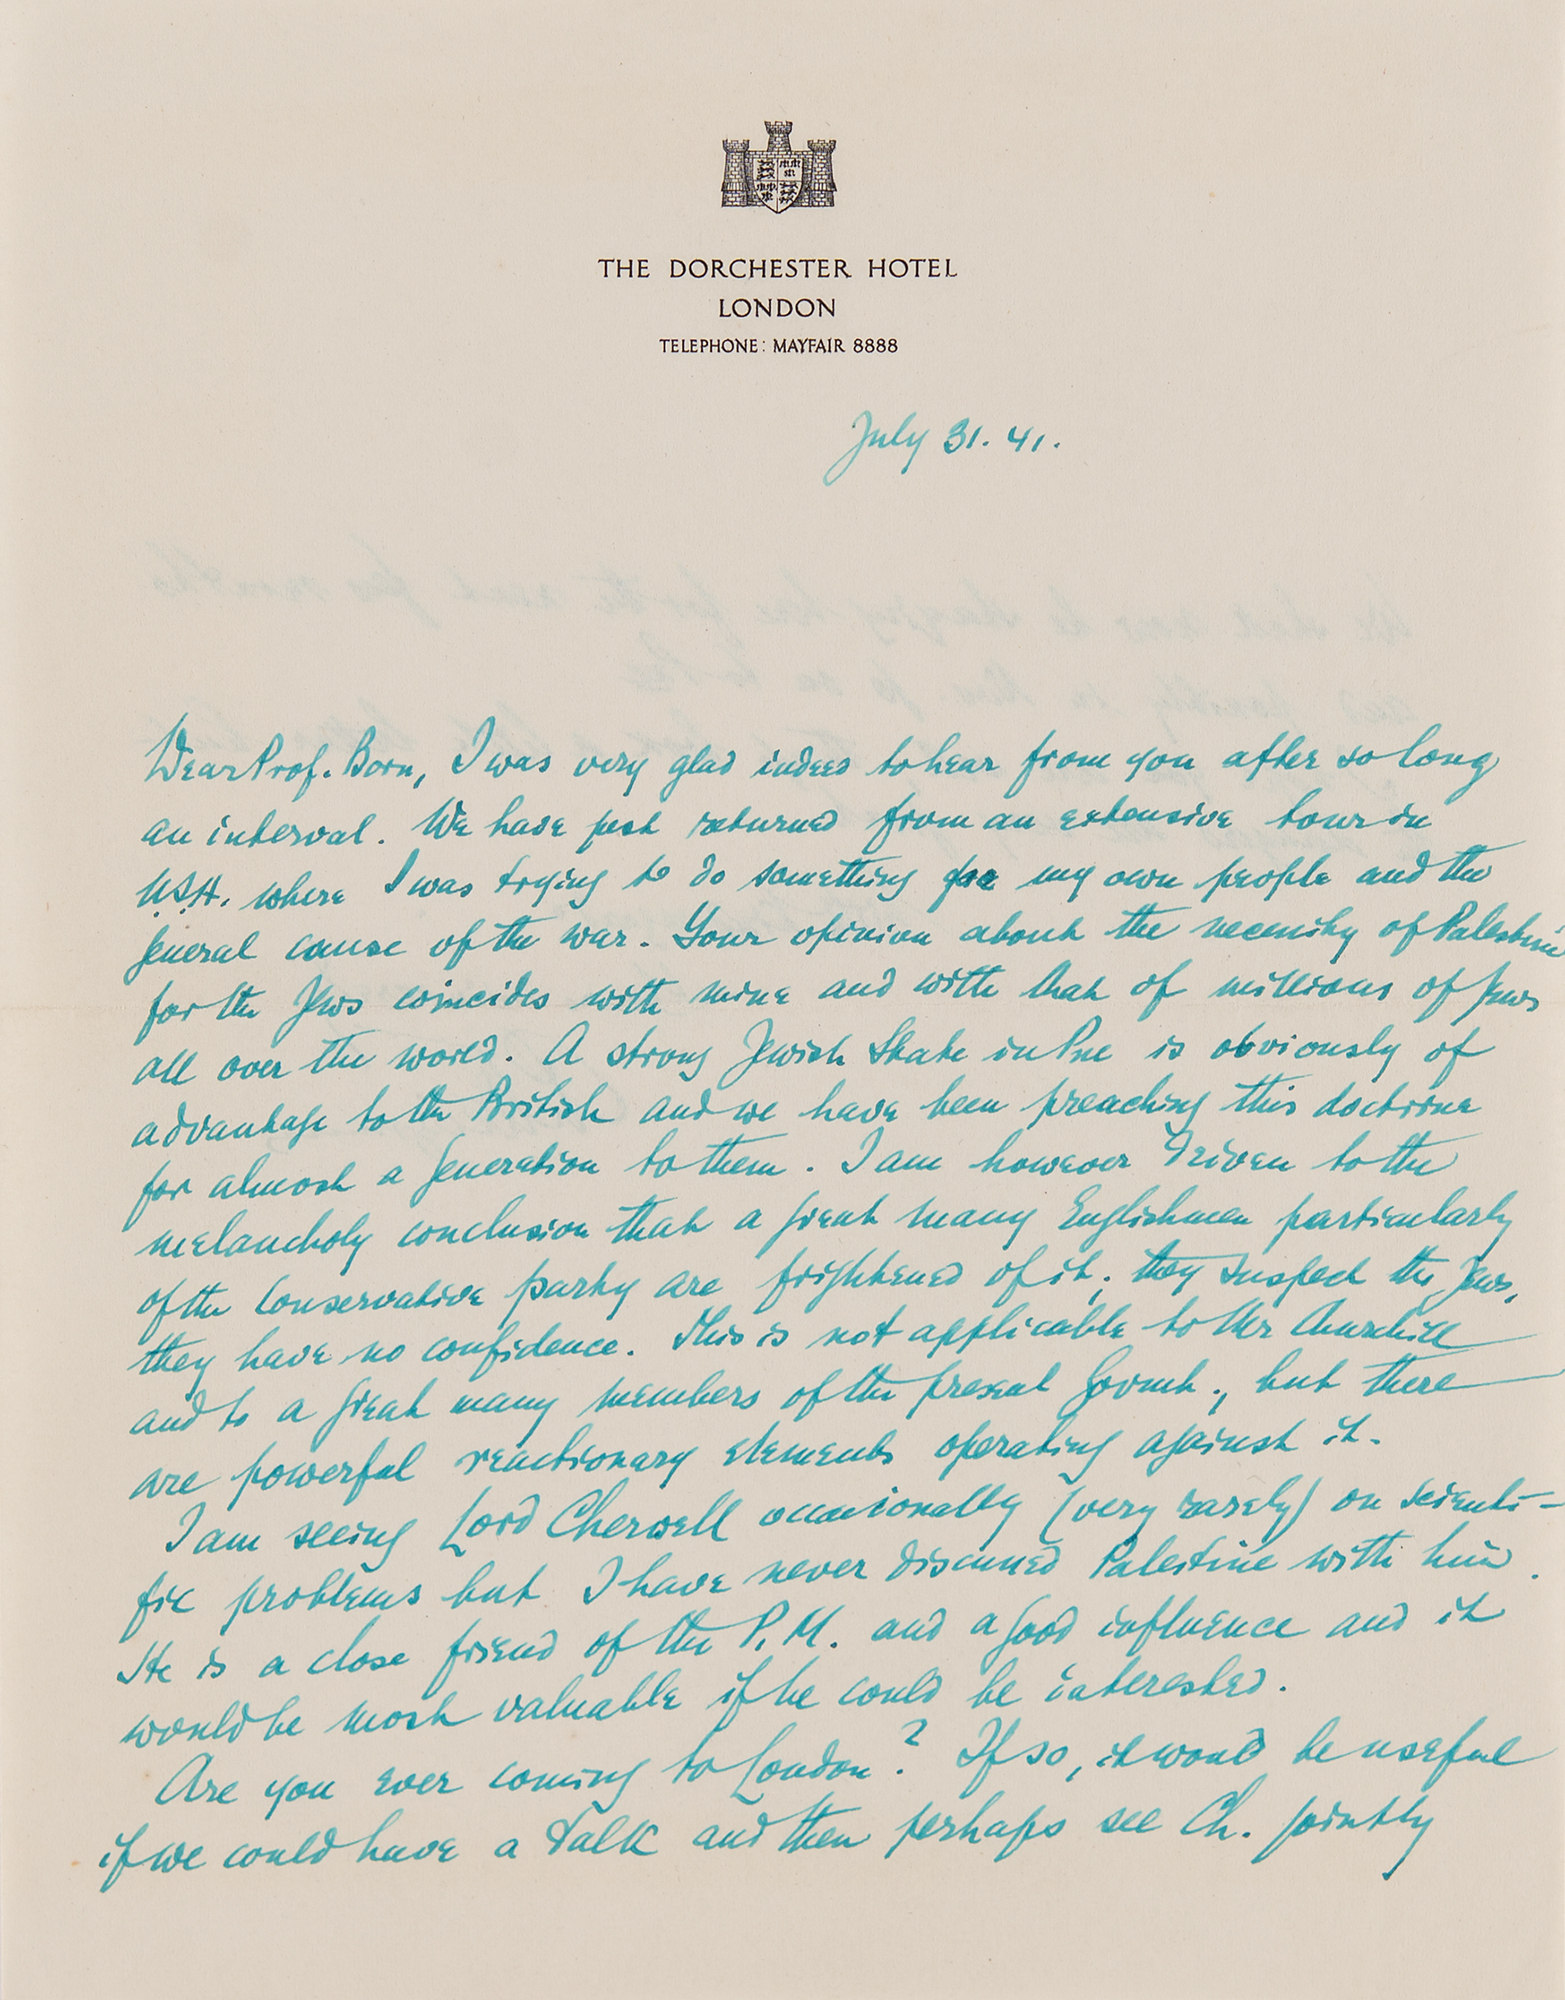 THE DORCHESTER HOTEL
LONDON
TELEPHONE: MAYFAIR 8888
July 31. 41.
Dear Prof. Born, I was very glad indeed to hear from you after so long
an interval. We have just returned from an extensive tour in
U.S.A. where I was trying to do something for my own people and the
general cause of the war. Your opinion about the necessity of Palestine
for the Jews coincides with mine and with that of millions of Jews
all over the world. A strong Jewish State in Pne is obviously of
advantage to the British and we have been preaching this doctrine
for almost a generation to them. I am however driven to the
melancholy conclusion that a great many Englishmen particularly
of the Conservative party are frightened of it; they suspect the Jews,
they have no confidence. This is not applicable to Mr Churchill
and to a great many members of the present Govmt., but there
are powerful reactionary elements operating against it.
I am seeing Lord Cherwell occasionally (very rarely) on scienti-
fic problems but I have never discussed Palestine with him.
He is a close friend of the P.M. and a good influence and it
would be most valuable if he could be interested.
Are you ever coming to London? If so, it would be useful
if we could have a talk and then perhaps see Ch. jointly